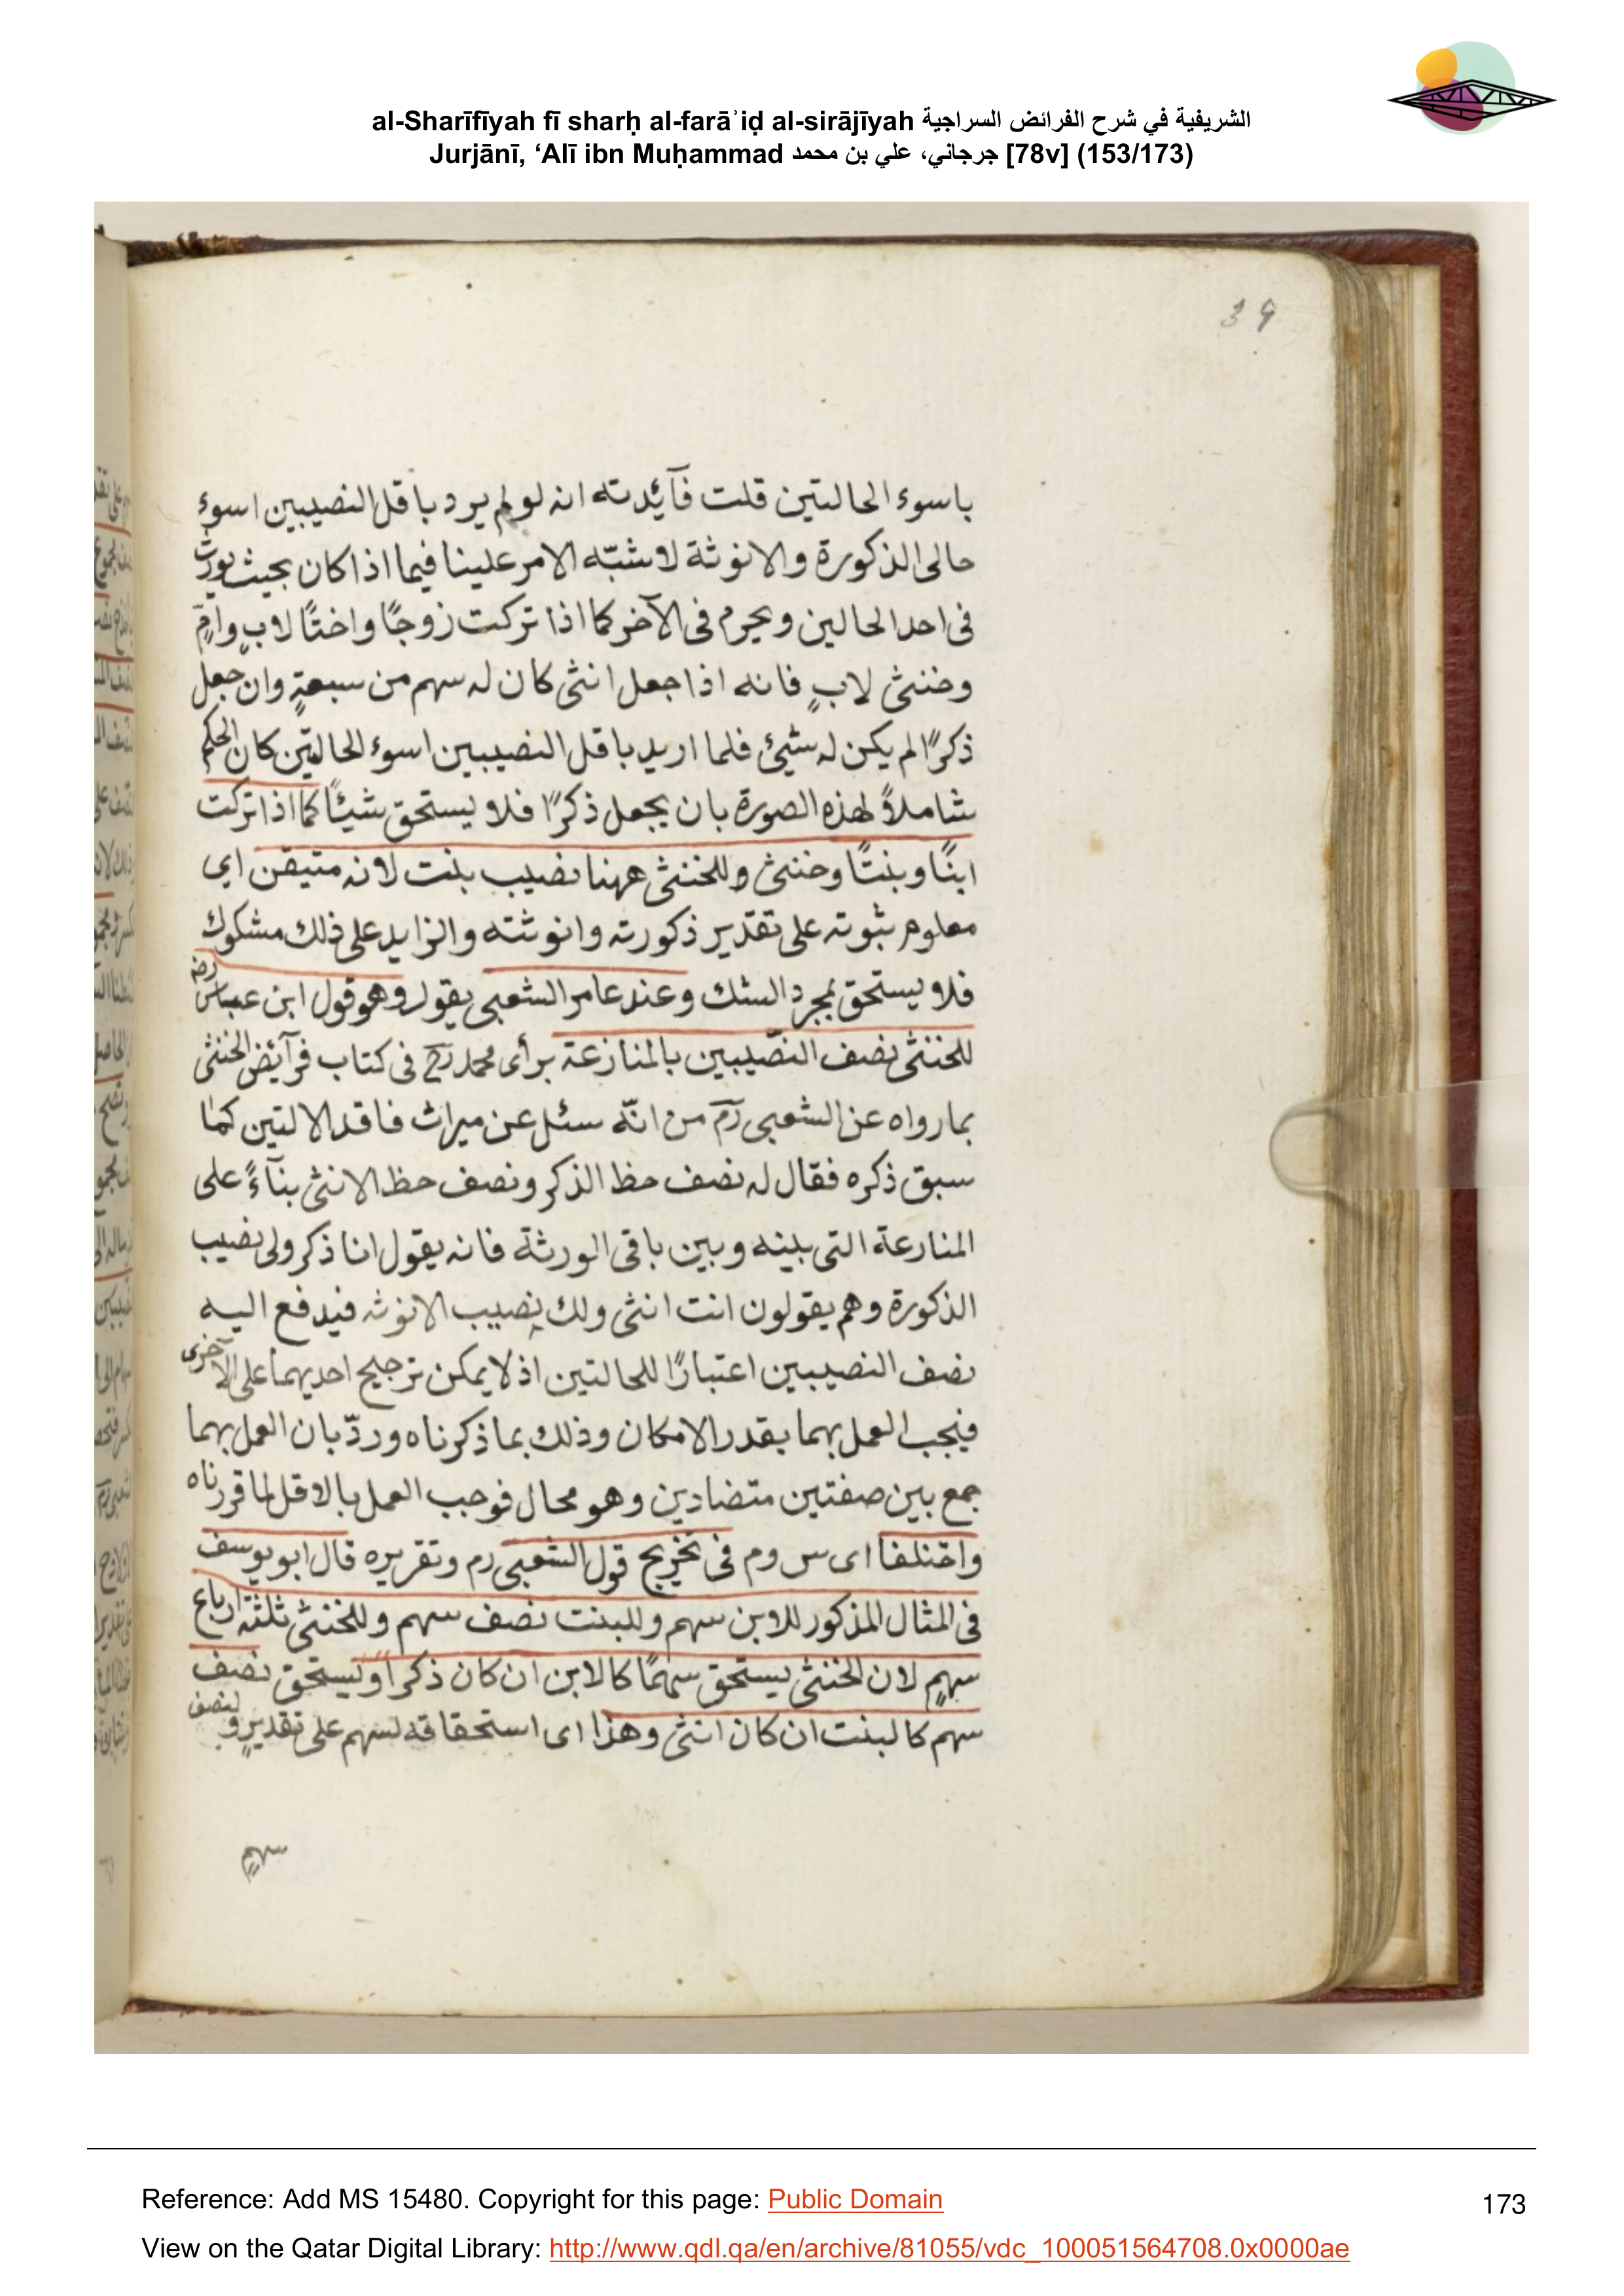 al-Sharīfīyah fī sharḥ al-farāʾiḍ al-sirājīyah الشريفية في شرح الفرائض السراجية
Jurjānī, ‘Alī ibn Muḥammad جرجاني، علي بن محمد [78v] (153/173)
39
باسوء الحالتين قلت فآئدته انه لو لم يرد باقل النصيبين اسوء
حالى الذكورة والانوثة لاشتبه الامر علينا فيما اذا كان بحيث يورث
فى احد الحالين ويحرم فى الآخر كما اذا تركت زوجًا واختًا لابٍ وامٍّ
وخنثى لابٍ فانه اذا جعل انثى كان له سهم من سبعةٍ وان جعل
ذكرًا لم يكن له شيئ فلما اريد باقل النصيبين اسوء الحالتين كان الحكم
شاملاً لهذه الصورة بان يجعل ذكرًا فلا يستحق شيئًا كما اذا تركت
ابنًا وبنتًا وخنثى وللخنثى ههنا نصيب بنت لانه متيقن اي
معلوم ثبوته على تقدير ذكورته وانوثته والزايد على ذلك مشكوك
فلا يستحق بمجرد الشك وعند عامر الشعبى يقول وهو قول ابن عباس رضـ
للخنثى نصف النصيبين بالمنازعة برأى محمد رح فى كتاب فرآئض الخنثى
بما رواه عن الشعبى رم من انّه سئل عن ميراث فاقد الالتين كما
سبق ذكره فقال له نصف حظ الذكر ونصف حظ الانثى بنآءً على
المنارعة التى بينه وبين باقى الورثة فانه يقول انا ذكر ولى نصيب
الذكورة وهم يقولون انت انثى ولك نصيب الانوثه فيدفع اليه
نصف النصيبين اعتبارًا للحالتين اذ لا يمكن ترجيح احديهما على الآخرى
فيجب العمل بهما بقدر الامكان وذلك بما ذكرناه وردّ بان العمل بهما
جمع بين صفتين متضادين وهو محال فوجب العمل بالاقل لما قررناه
واختلفا اى س وم فى تخريج قول الشعبى رم وتقريره قال ابو يوسف
فى المثال المذكور للابن سهم وللبنت نصف سهم وللخنثى ثلثة ارباع
سهمٍ لان الخنثى يستحق سهمًا كالابن ان كان ذكرًا ويستحق نصف
سهم كالبنت ان كان انثى وهذا اى استحقاقه لسهم على تقديرٍ و لنصف
سهمٍ
Reference: Add MS 15480. Copyright for this page: Public Domain
173
View on the Qatar Digital Library: http://www.qdl.qa/en/archive/81055/vdc_100051564708.0x0000ae